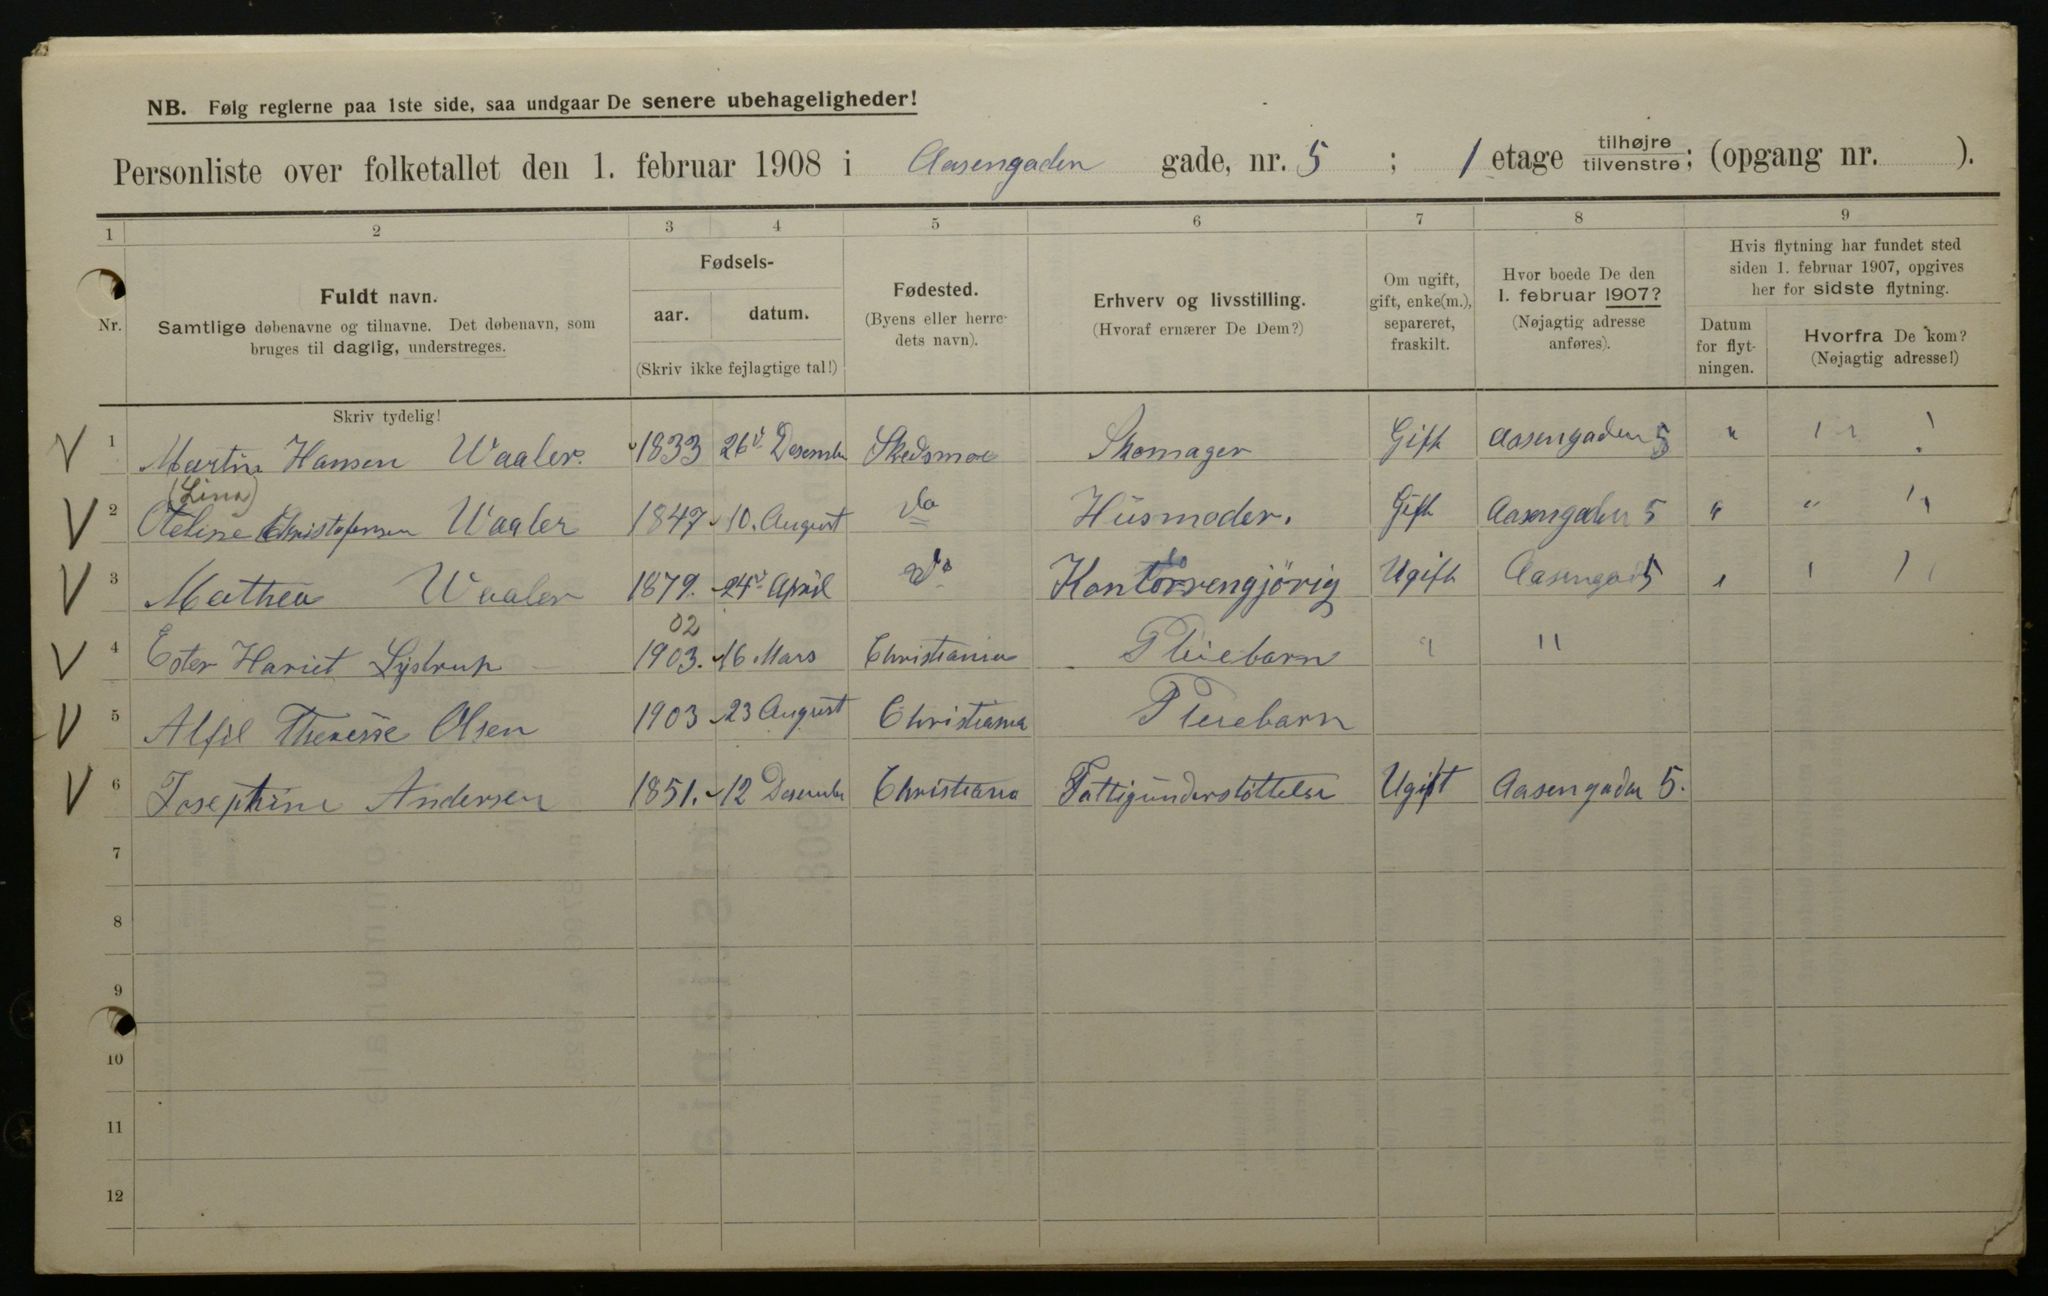 NB. Følg reglerne paa 1ste side, saa undgaar De senere ubehageligheder!
Personliste over folketallet den 1. februar 1908 i Aasengaden gade, nr. 5 ; 1 etage tilhøjre tilvenstre; (opgang nr. ).
1 2 3 4 5 6 7 8 9
Nr. Fuldt navn. Samtlige døbenavne og tilnavne. Det døbenavn, som bruges til daglig, understreges.
Fødsels- aar. datum. (Skriv ikke fejlagtige tal!)
Fødested. (Byens eller herredets navn).
Erhverv og livsstilling. (Hvoraf ernærer De Dem?)
Om ugift, gift, enke(m.), separeret, fraskilt.
Hvor boede De den 1. februar 1907? (Nøjagtig adresse anføres).
Hvis flytning har fundet sted siden 1. februar 1907, opgives her for sidste flytning.
Datum for flytningen. Hvorfra De kom? (Nøjagtig adresse!)
Skriv tydelig!
1 Martin Hansen Waaler. 1833 26 Desember Skedsmoe Skomager Gift Aasengaden 5 "
(Lina)
2 Oteline Christofersen Waaler 1847 10. August Do Husmoder. Gift Aasengaden 5 " "
3 Mathea Waaler 1879. 24 April Do Kontorrengjörig Ugift Aasengad 5
02
4 Ester Hariet Lystrup 1903. 16 Mars Christiania Pleiebarn " "
5 Alfil Theresie Olsen 1903 23 August Christiania Pleiebarn
6 Josephine Andersen 1851. 12 Desember Christiania Fattigunderstøttelse Ugift Aasengaden 5.
7
8
9
10
11
12